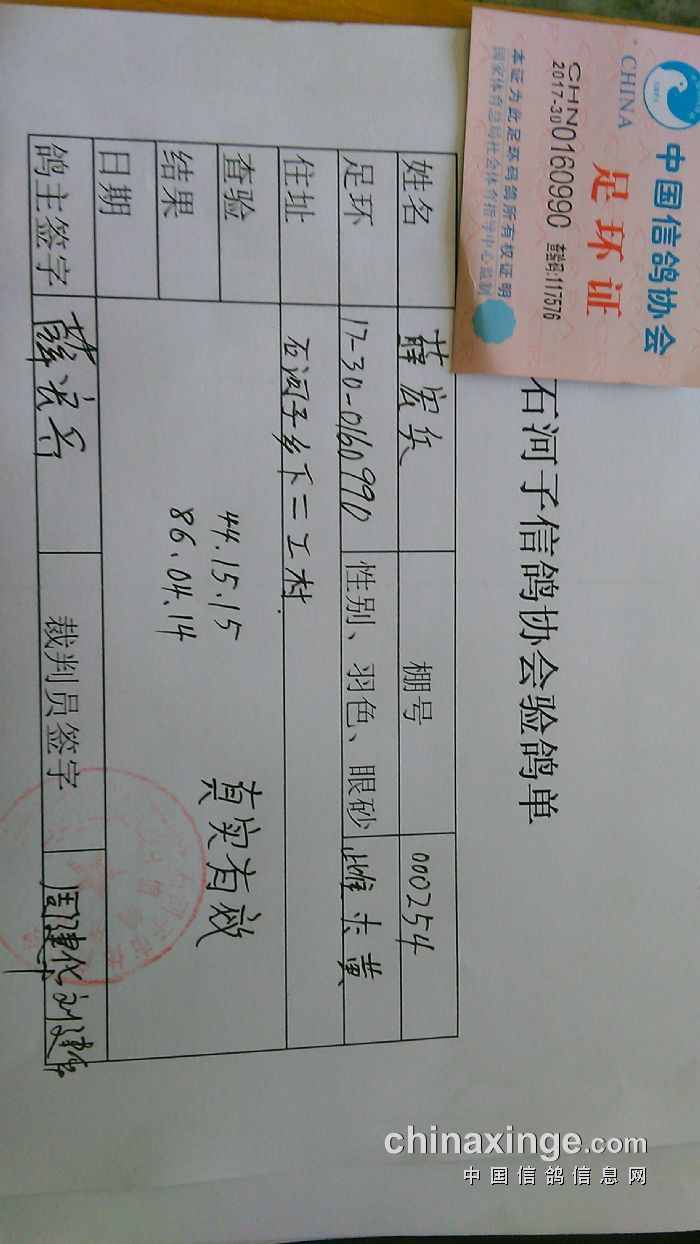 中国信鸽协会
足环证
CHINA
CHN
2017-30 0160990 查验码:117576
本证为此足环码鸽所有权证明
国家体育总局社会体育指导中心监制
石河子信鸽协会验鸽单
姓名 薛宏兵 棚号 000254
足环 17-30-0160990 性别、羽色、眼砂 雌 灰 黄
住址 石河子乡下二工村.
查验
结果
44.15.15
86.04.14
真实有效
日期
鸽主签字 裁判员签字 周建化
chinaxinge.com
中国信鸽信息网